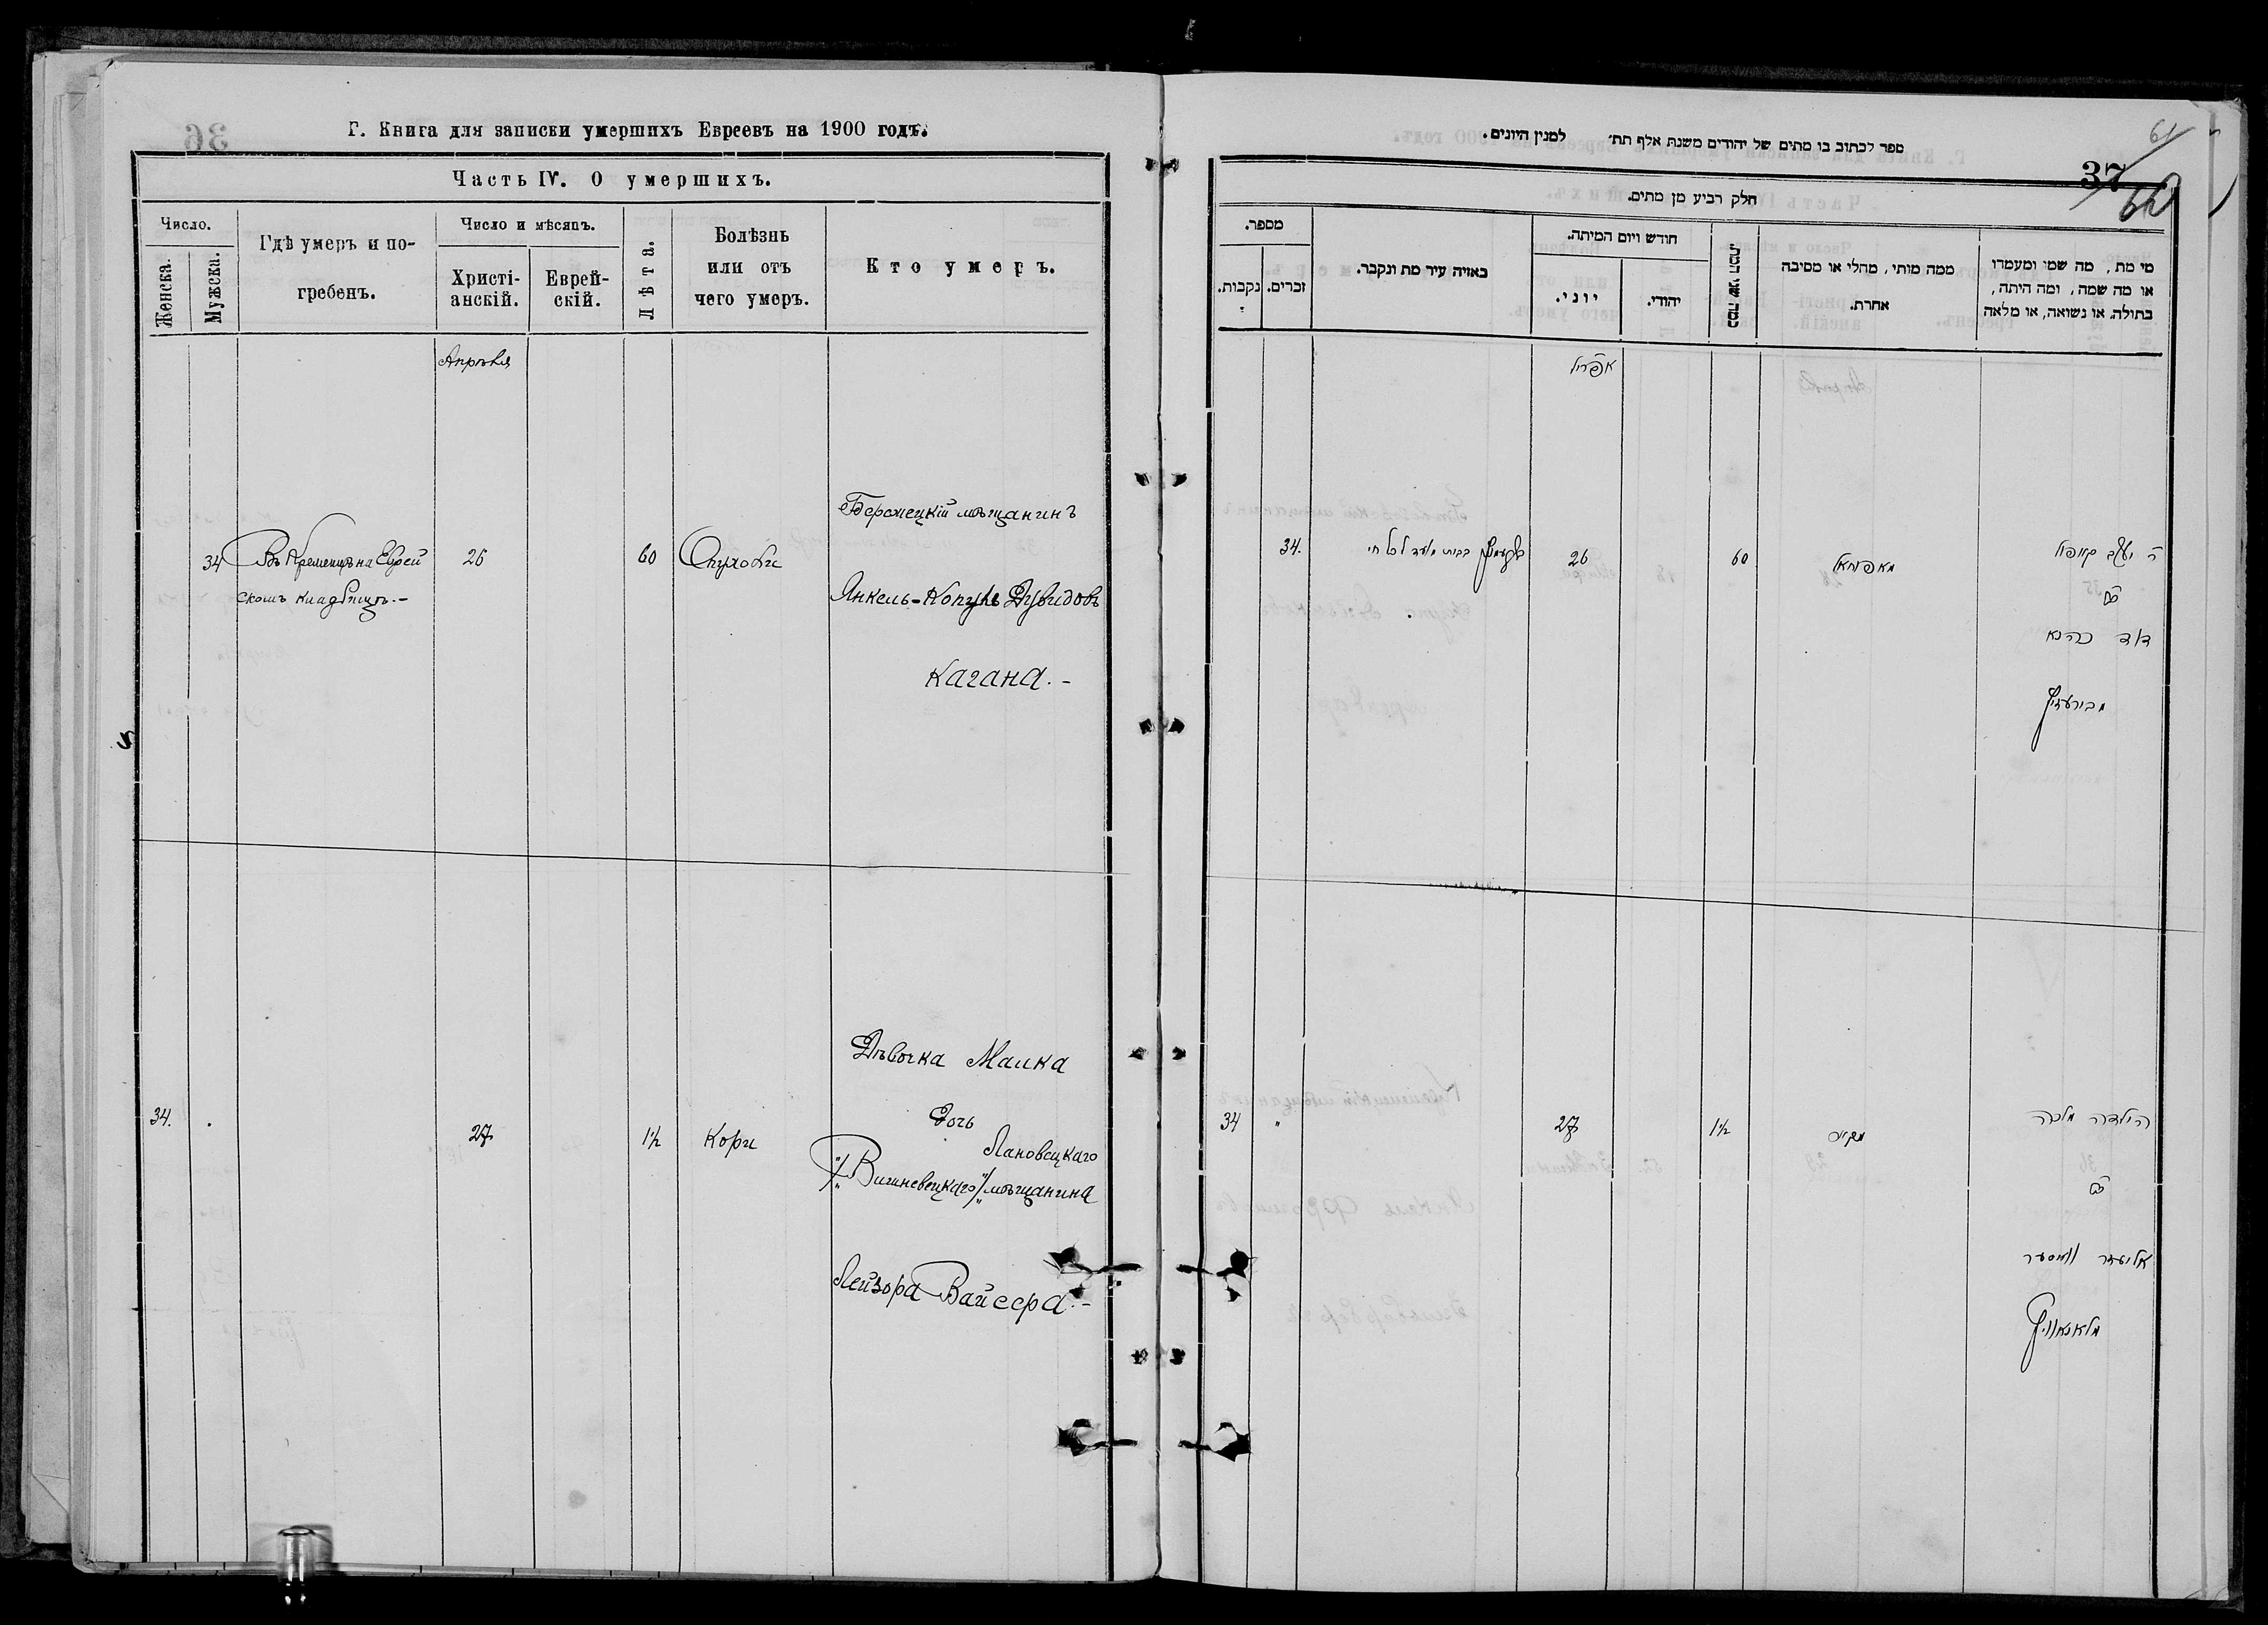 Г. Книга для записки умершихъ Евреевъ на 1900 годъ.
Часть IV. О умершихъ.
Число.
Женска.
Мужска.
Гдѣ умеръ и по-
гребенъ.
Число и мѣсяцъ.
Христі-
анскій.
Еврей-
скій.
Лѣта.
Болѣзнь
или отъ
чего умеръ.
Кто умеръ.
Апрѣля
34
Въ Кременцѣ на Еврей
скомъ кладбищѣ.-
26
60
Опухоли
Бережецкій мѣщанинъ
Янкель-Копуль Дувидовъ
Кагана.-
34.
27
1½
Кори
Дѣвочка Малка
дочь
Лановецкаго
Вишневецкаго мѣщанина
Лейзора Вайсера.-
ספר לכתוב בו מתים של יהודים משנת אלף תת׳ למנין היונים.
61
37
62
חלק רביע מן מתים.
מספר.
נקבות.
זכרים.
באיזה עיר מת ונקבר.
חודש ויום המיתה.
יוני.
יהודי.
כמה שני המת.
ממה מותי, מחלי או מסיבה
אחרת.
מי מת, מה שמו ומעמדו
או מה שמה, ומה היתה,
בתולה, או נשואה, או מלאה
אפריל
34.
בבית מועד לכל חי
26
60
ר׳ יעקב קופיל
דוד כהנא
34
"
27
1½
הילדה מלכה
אליעזר ווייסער